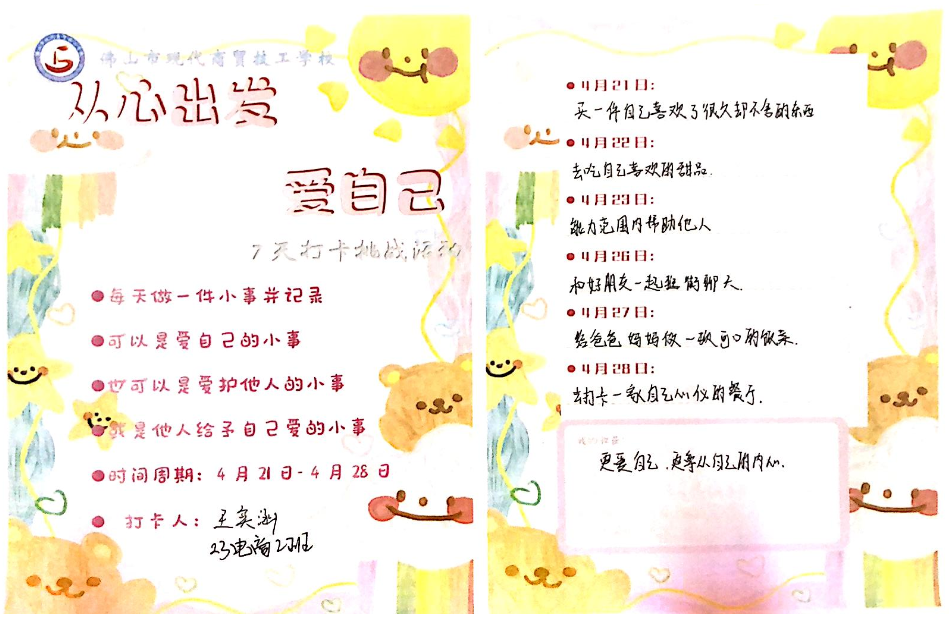 佛山市现代商贸技工学校
从心出发
爱自己
7天打卡挑战活动
每天做一件小事并记录
可以是爱自己的小事
也可以是爱护他人的小事
或是他人给予自己爱的小事
时间周期：4月21日-4月28日
打卡人：王奕涵
23电商2班
4月21日：
买一件自己喜欢了很久却不舍的东西
4月22日：
去吃自己喜欢的甜品.
4月23日：
能力范围内帮助他人
4月26日：
和好朋友一起逛街聊天.
4月27日：
给爸爸妈妈做一顿可口的饭菜.
4月28日：
去打卡一家自己心仪的餐厅.
更爱自己.更尊从自己的内心.